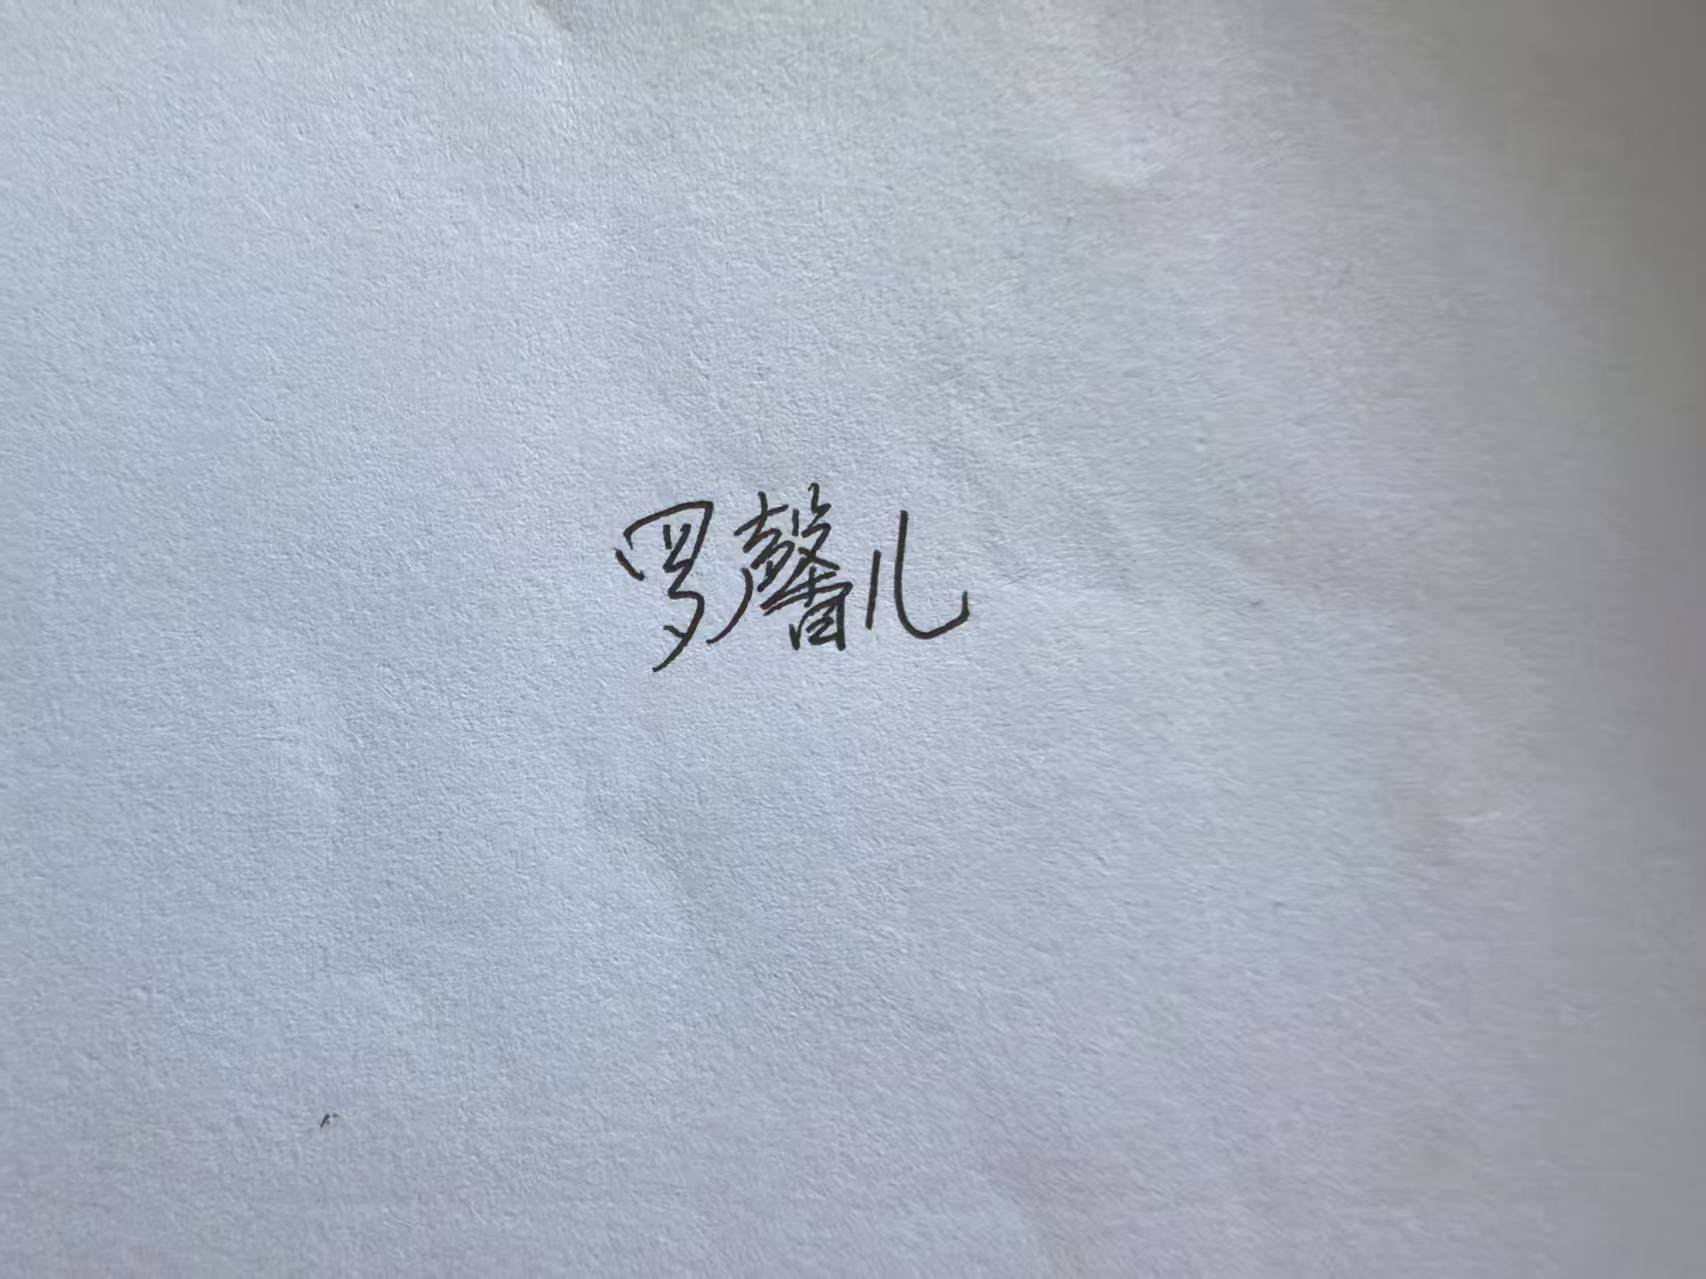 罗馨儿